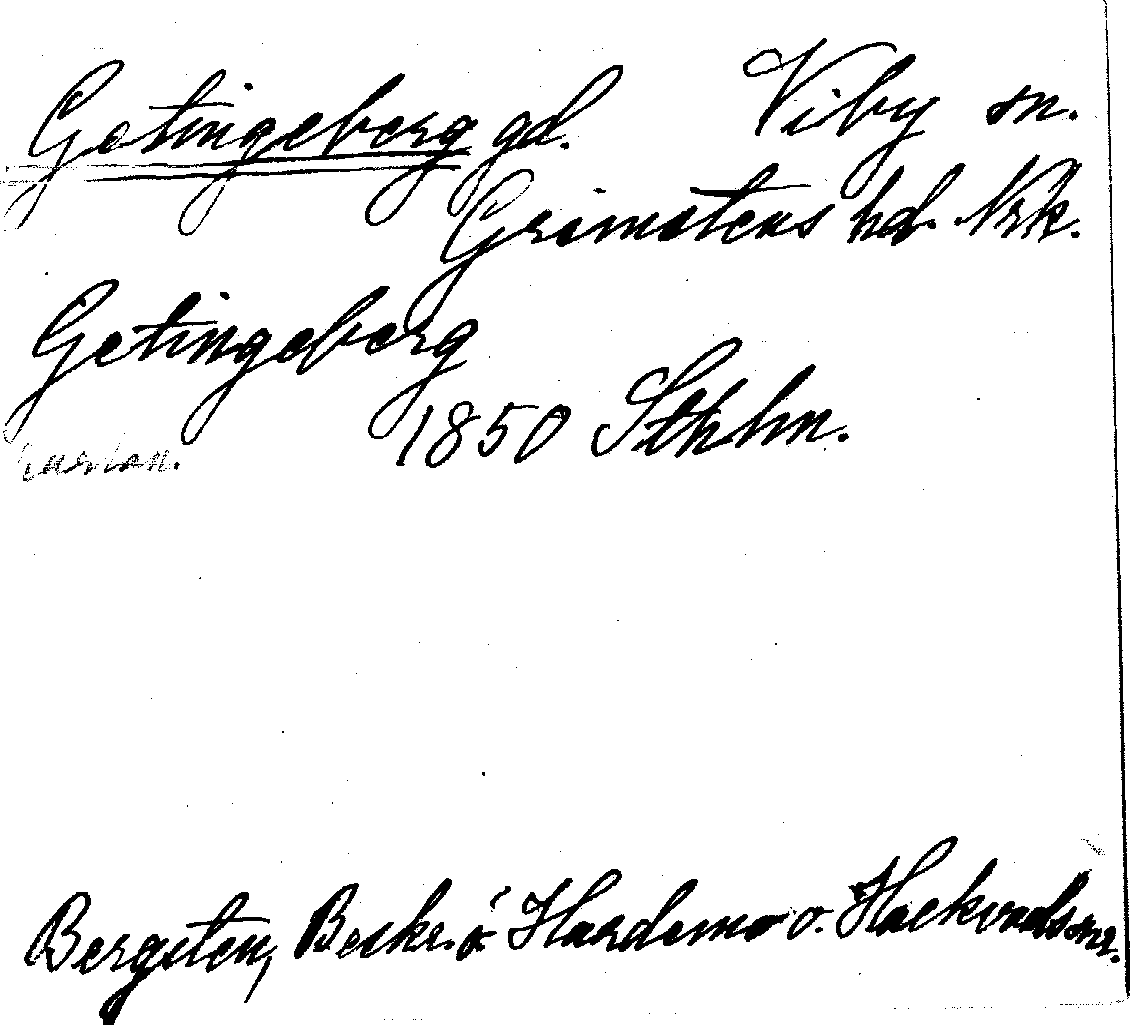 Getingeberg gd. Viby sn.
Grimstens hd. Nrk.
Getingeberg
1850 Sthlm.
Bergsten, Beskr. ö. Hardemo o. Hackvads snr.